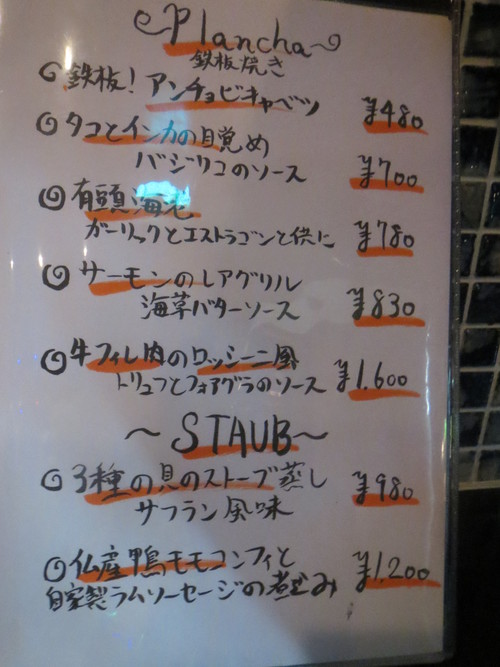 Plancha
鉄板焼き
鉄板!アンチョビキャベツ
¥480
タコとインカの目覚め
バジリコのソース
¥700
有頭海老
ガーリックとエストラゴンと供に
¥780
サーモンのレアグリル
海草バターソース
¥830
牛フィレ肉のロッシーニ風
トリュフとフォアグラのソース
¥1.600
~STAUB~
3種の貝のストーブ蒸し
サフラン風味
¥980
仏産鴨モモコンフィと
自家製ラムソーセージの煮込み
¥1.200